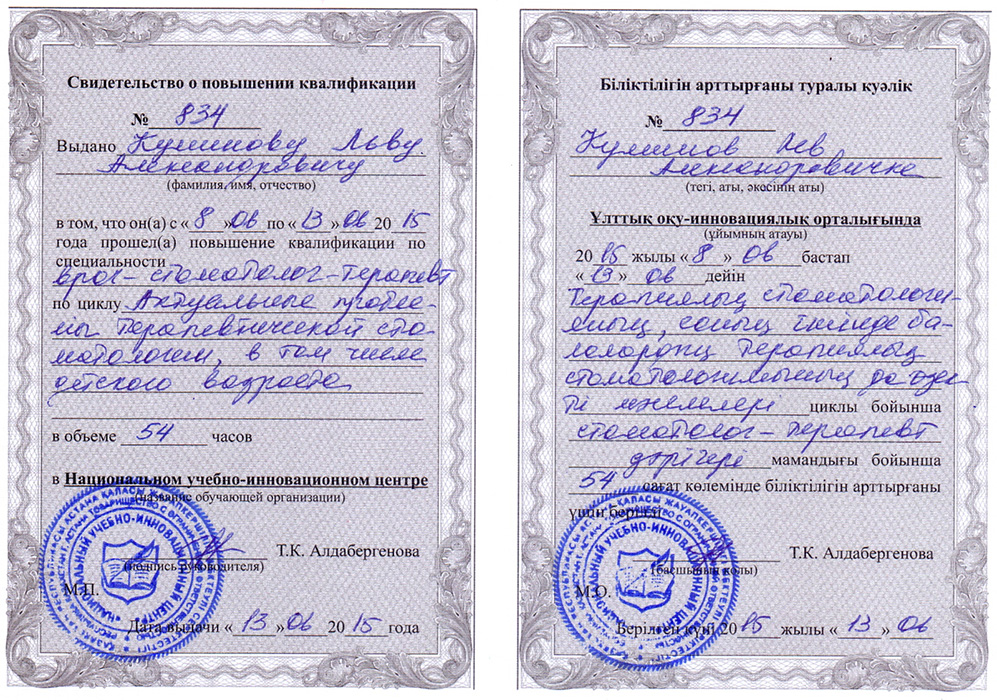 Свидетельство о повышении квалификации
№ 834
Выдано Кулинову Льву
Александровичу
(фамилия, имя, отчество)
в том, что он(а) с « 8 » 06 по « 13 » 06 20 15
года прошел(а) повышение квалификации по
специальности
врач-стоматолог-терапевт
по циклу Актуальные пробле-
мы терапевтической сто-
матологии, в том числе
детского возраста
в объеме 54 часов
в Национальном учебно-инновационном центре
(название обучающей организации)
Т.К. Алдабергенова
(подпись руководителя)
М.П.
Дата выдачи « 13 » 06 2015 года
НАЦИОНАЛЬНЫЙ УЧЕБНО-ИННОВАЦИОННЫЙ ЦЕНТР
Біліктілігін арттырғаны туралы куәлік
№ 834
Лев
Александровичке
(тегі, аты, әкесінің аты)
Ұлттық оқу-инновациялық орталығында
(ұйымның атауы)
20 15 жылы « 8 » 06 бастап
« 13 » 06 дейін
Терапиялық стоматологи-
яның, соның ішінде ба-
лалардың терапиялық
стоматологиясының да өзек-
ті мәселелері циклы бойынша
стоматолог-терапевт
дәрігері мамандығы бойынша
54 сағат көлемінде біліктілігін арттырғаны
үшін берілді
Т.К. Алдабергенова
(басшының қолы)
М.О.
Берілген күні 20 15 жылы « 13 » 06
НАЦИОНАЛЬНЫЙ УЧЕБНО-ИННОВАЦИОННЫЙ ЦЕНТР